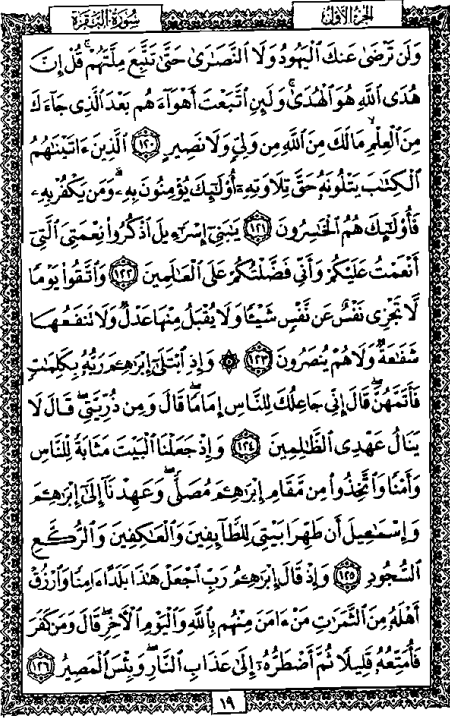 سُورَةُ البَقَرَةِ الجُزْءُ الأَوَّلُ
وَلَن تَرْضَىٰ عَنكَ ٱلْيَهُودُ وَلَا ٱلنَّصَٰرَىٰ حَتَّىٰ تَتَّبِعَ مِلَّتَهُمْ ۗ قُلْ إِنَّ
هُدَى ٱللَّهِ هُوَ ٱلْهُدَىٰ ۗ وَلَئِنِ ٱتَّبَعْتَ أَهْوَآءَهُم بَعْدَ ٱلَّذِى جَآءَكَ
مِنَ ٱلْعِلْمِ ۙ مَا لَكَ مِنَ ٱللَّهِ مِن وَلِىٍّ وَلَا نَصِيرٍ ١٢٠ ٱلَّذِينَ ءَاتَيْنَٰهُمُ
ٱلْكِتَٰبَ يَتْلُونَهُۥ حَقَّ تِلَاوَتِهِۦٓ أُو۟لَٰٓئِكَ يُؤْمِنُونَ بِهِۦ ۗ وَمَن يَكْفُرْ بِهِۦ
فَأُو۟لَٰٓئِكَ هُمُ ٱلْخَٰسِرُونَ ١٢١ يَٰبَنِىٓ إِسْرَٰٓءِيلَ ٱذْكُرُوا۟ نِعْمَتِىَ ٱلَّتِىٓ
أَنْعَمْتُ عَلَيْكُمْ وَأَنِّى فَضَّلْتُكُمْ عَلَى ٱلْعَٰلَمِينَ ١٢٢ وَٱتَّقُوا۟ يَوْمًا
لَّا تَجْزِى نَفْسٌ عَن نَّفْسٍ شَيْـًٔا وَلَا يُقْبَلُ مِنْهَا عَدْلٌ وَلَا تَنفَعُهَا
شَفَٰعَةٌ وَلَا هُمْ يُنصَرُونَ ١٢٣ ۞ وَإِذِ ٱبْتَلَىٰٓ إِبْرَٰهِۦمَ رَبُّهُۥ بِكَلِمَٰتٍ
فَأَتَمَّهُنَّ ۖ قَالَ إِنِّى جَاعِلُكَ لِلنَّاسِ إِمَامًا ۖ قَالَ وَمِن ذُرِّيَّتِى ۖ قَالَ لَا
يَنَالُ عَهْدِى ٱلظَّٰلِمِينَ ١٢٤ وَإِذْ جَعَلْنَا ٱلْبَيْتَ مَثَابَةً لِّلنَّاسِ
وَأَمْنًا وَٱتَّخِذُوا۟ مِن مَّقَامِ إِبْرَٰهِۦمَ مُصَلًّى ۖ وَعَهِدْنَآ إِلَىٰٓ إِبْرَٰهِۦمَ
وَإِسْمَٰعِيلَ أَن طَهِّرَا بَيْتِىَ لِلطَّآئِفِينَ وَٱلْعَٰكِفِينَ وَٱلرُّكَّعِ
ٱلسُّجُودِ ١٢٥ وَإِذْ قَالَ إِبْرَٰهِۦمُ رَبِّ ٱجْعَلْ هَٰذَا بَلَدًا ءَامِنًا وَٱرْزُقْ
أَهْلَهُۥ مِنَ ٱلثَّمَرَٰتِ مَنْ ءَامَنَ مِنْهُم بِٱللَّهِ وَٱلْيَوْمِ ٱلْءَاخِرِ ۖ قَالَ وَمَن كَفَرَ
فَأُمَتِّعُهُۥ قَلِيلًا ثُمَّ أَضْطَرُّهُۥٓ إِلَىٰ عَذَابِ ٱلنَّارِ ۖ وَبِئْسَ ٱلْمَصِيرُ ١٢٦
١٩